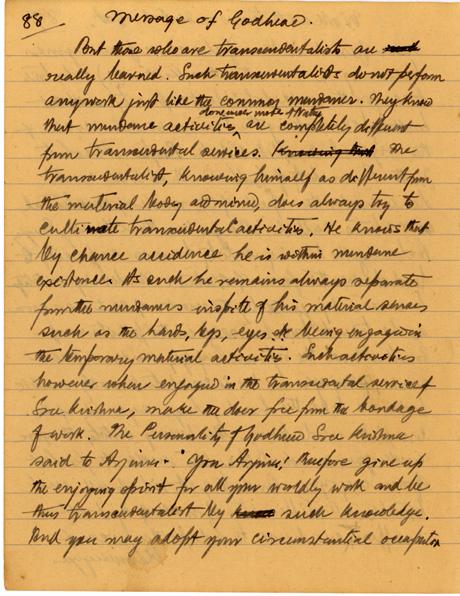 88
Message of Godhead.
But those who are transcendentalists are
really learned. Such transcendentalists do not perform
any work just like the common mundaner. They know
that mundane activities, done under mode of Nature are completely different
from transcendental services. Knowing that The
transcendentalist, knowing himself as different from
the material body and mind, does always try to
cultivate transcendental activities. He knows that
by chance accidence he is within mundane
existence. As such he remains always separate
from the mundaners inspite of his material senses
such as the hands, legs, eyes etc being engaged in
the temporary material activities. Such activities
however when engaged in the transcendental service of
Sree Krishna, make the doer free from the bondage
of work. The Personality of Godhead Sree Krishna
said to Arjuna:- "You Arjuna! therefore give up
the enjoying spirit for all your worldly work and be
thus transcendentalist by such knowledge.
And you may adopt your circumstantial occupation